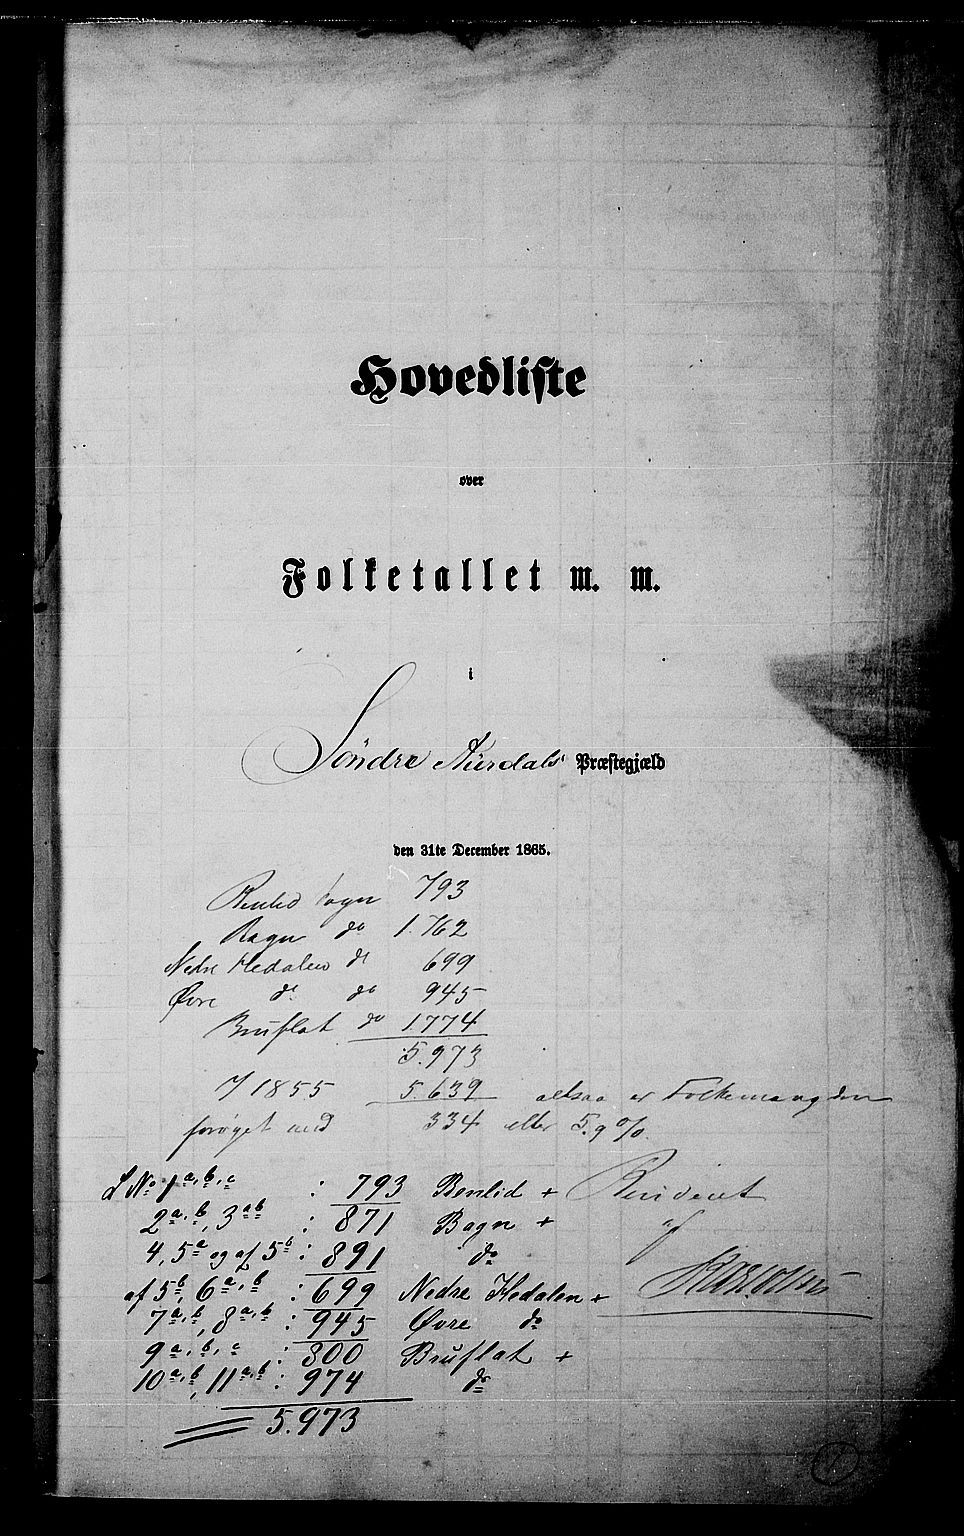 Hovedliste
over
Folketallet m. m.
i
Søndre Aurdals Præstegjæld
den 31te December 1865.
Renlid sogn 793
Bagn do 1.762
Nedre Hedalen do 699
Øvre do do 945
Bruflat do 1774
5.973
I 1855 5.639 altsaa er Folkemængden
forøget med 334 eller 5.9 %.
L No 1 a, b, c : 793 Renlid +
2 a, b, 3 a b : 871 Bagn +
4, 5 a og af 5 b : 891 do
af 5 b, 6 a, b : 699 Nedre Hedalen +
7 a, b, 8 a, b : 945 Øvre do
9 a, b, c : 800 Bruflat +
10 a, b, 11 a, b : 974 do
5.973
Revideret
af
1